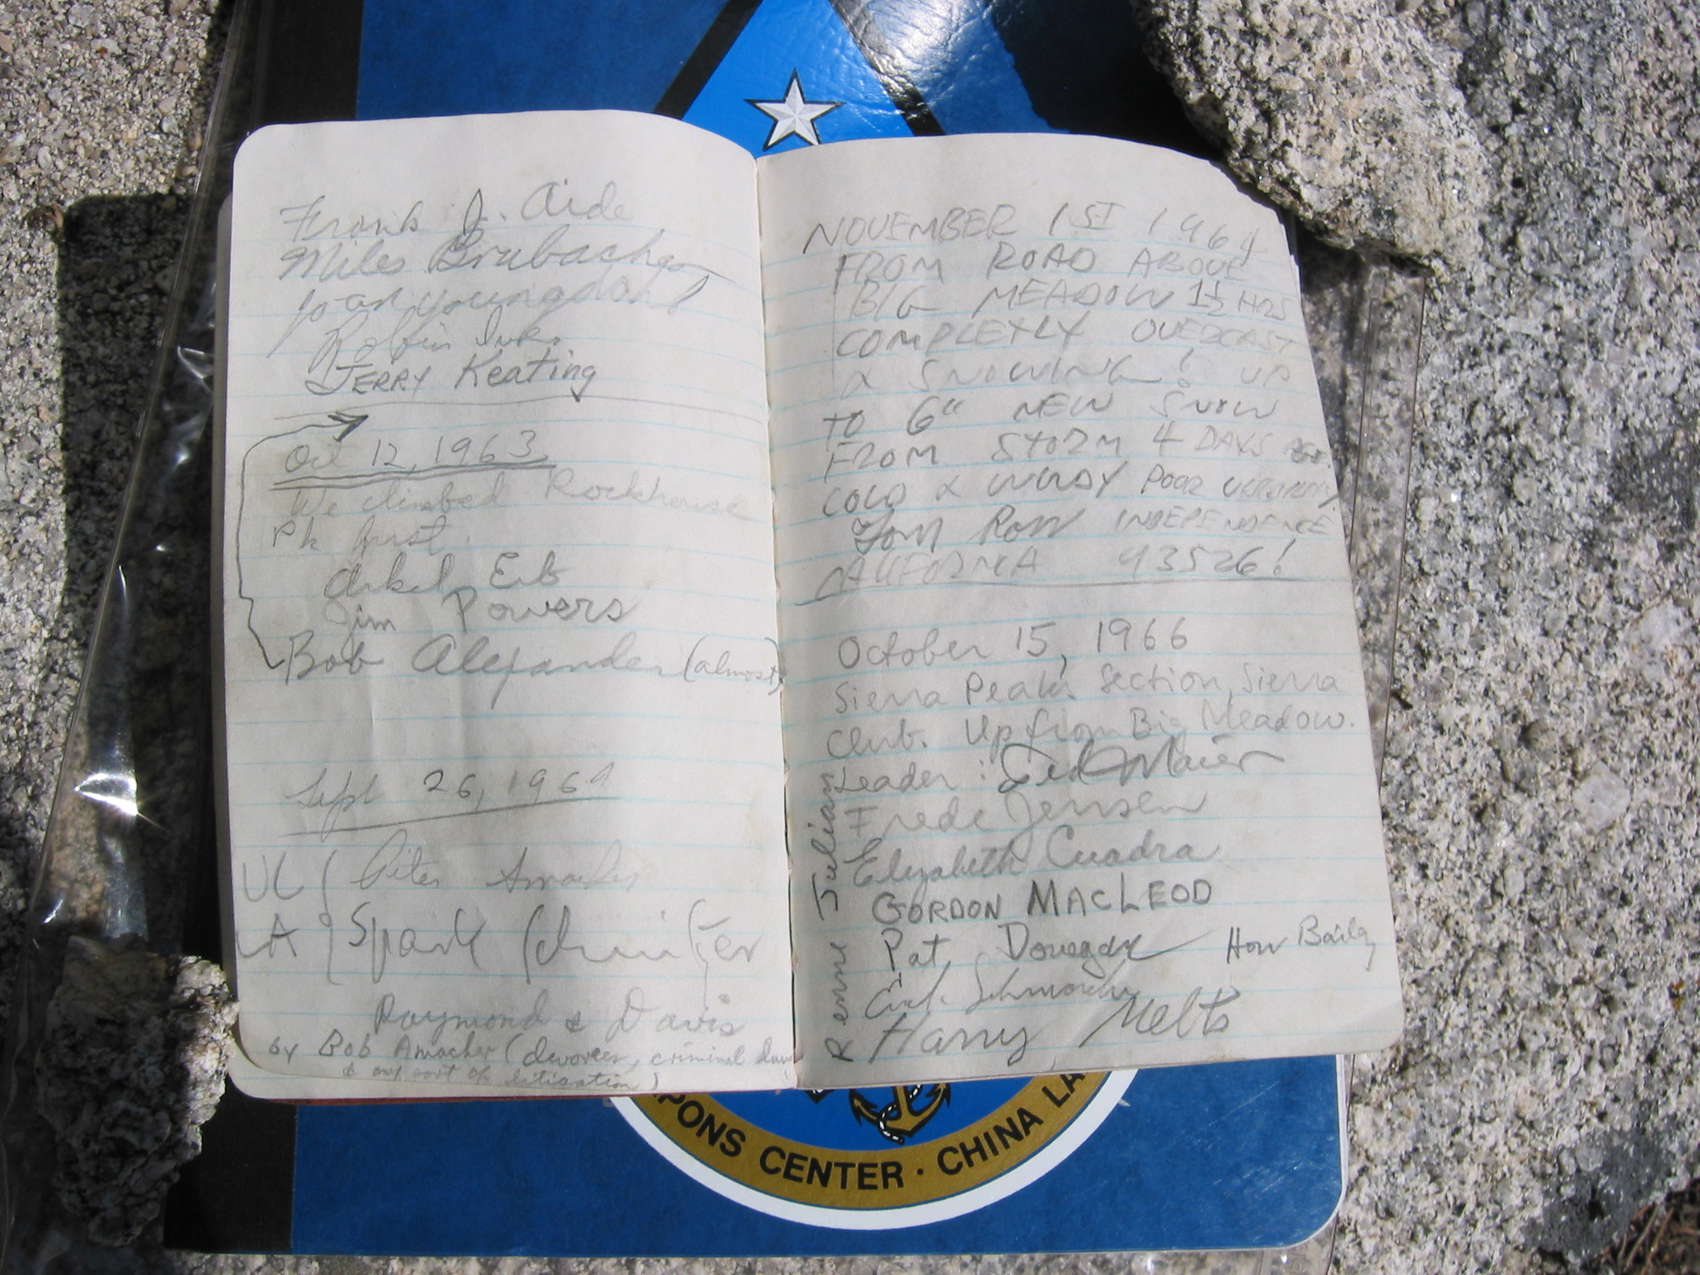 Frank J. Aide
Miles Brubacher
Joan Youngdahl
Robin Ink
JERRY Keating
Oct 12, 1963
We climbed Rockhouse
Pk first.
Arkel Erb
Jim Powers
Bob Alexander (almost)
Sept 26, 1964
UC
LA
Amacher
Spark
Raymond & Davis
by Bob Amacher (divorces, criminal law
& any sort of litigation)
NOVEMBER 1ST 1964
FROM ROAD ABOVE
BIG MEADOW 1½ HRS
COMPLETLY OVERCAST
& SNOWING! UP
TO 6" NEW SNOW
FROM STORM 4 DAYS
COLD & WINDY POOR
Tom Ross INDEPENDENCE
CALIFORNIA 93526!
October 15, 1966
Sierra Peaks Section, Sierra
Club. Up from Big Meadow.
Leader: Ted Maier
Frede Jensen
Elizabeth Cuadra
GORDON MACLEOD
Pat Donegan
How Bailey
Harry Melts
Julian
PONS CENTER · CHINA LA